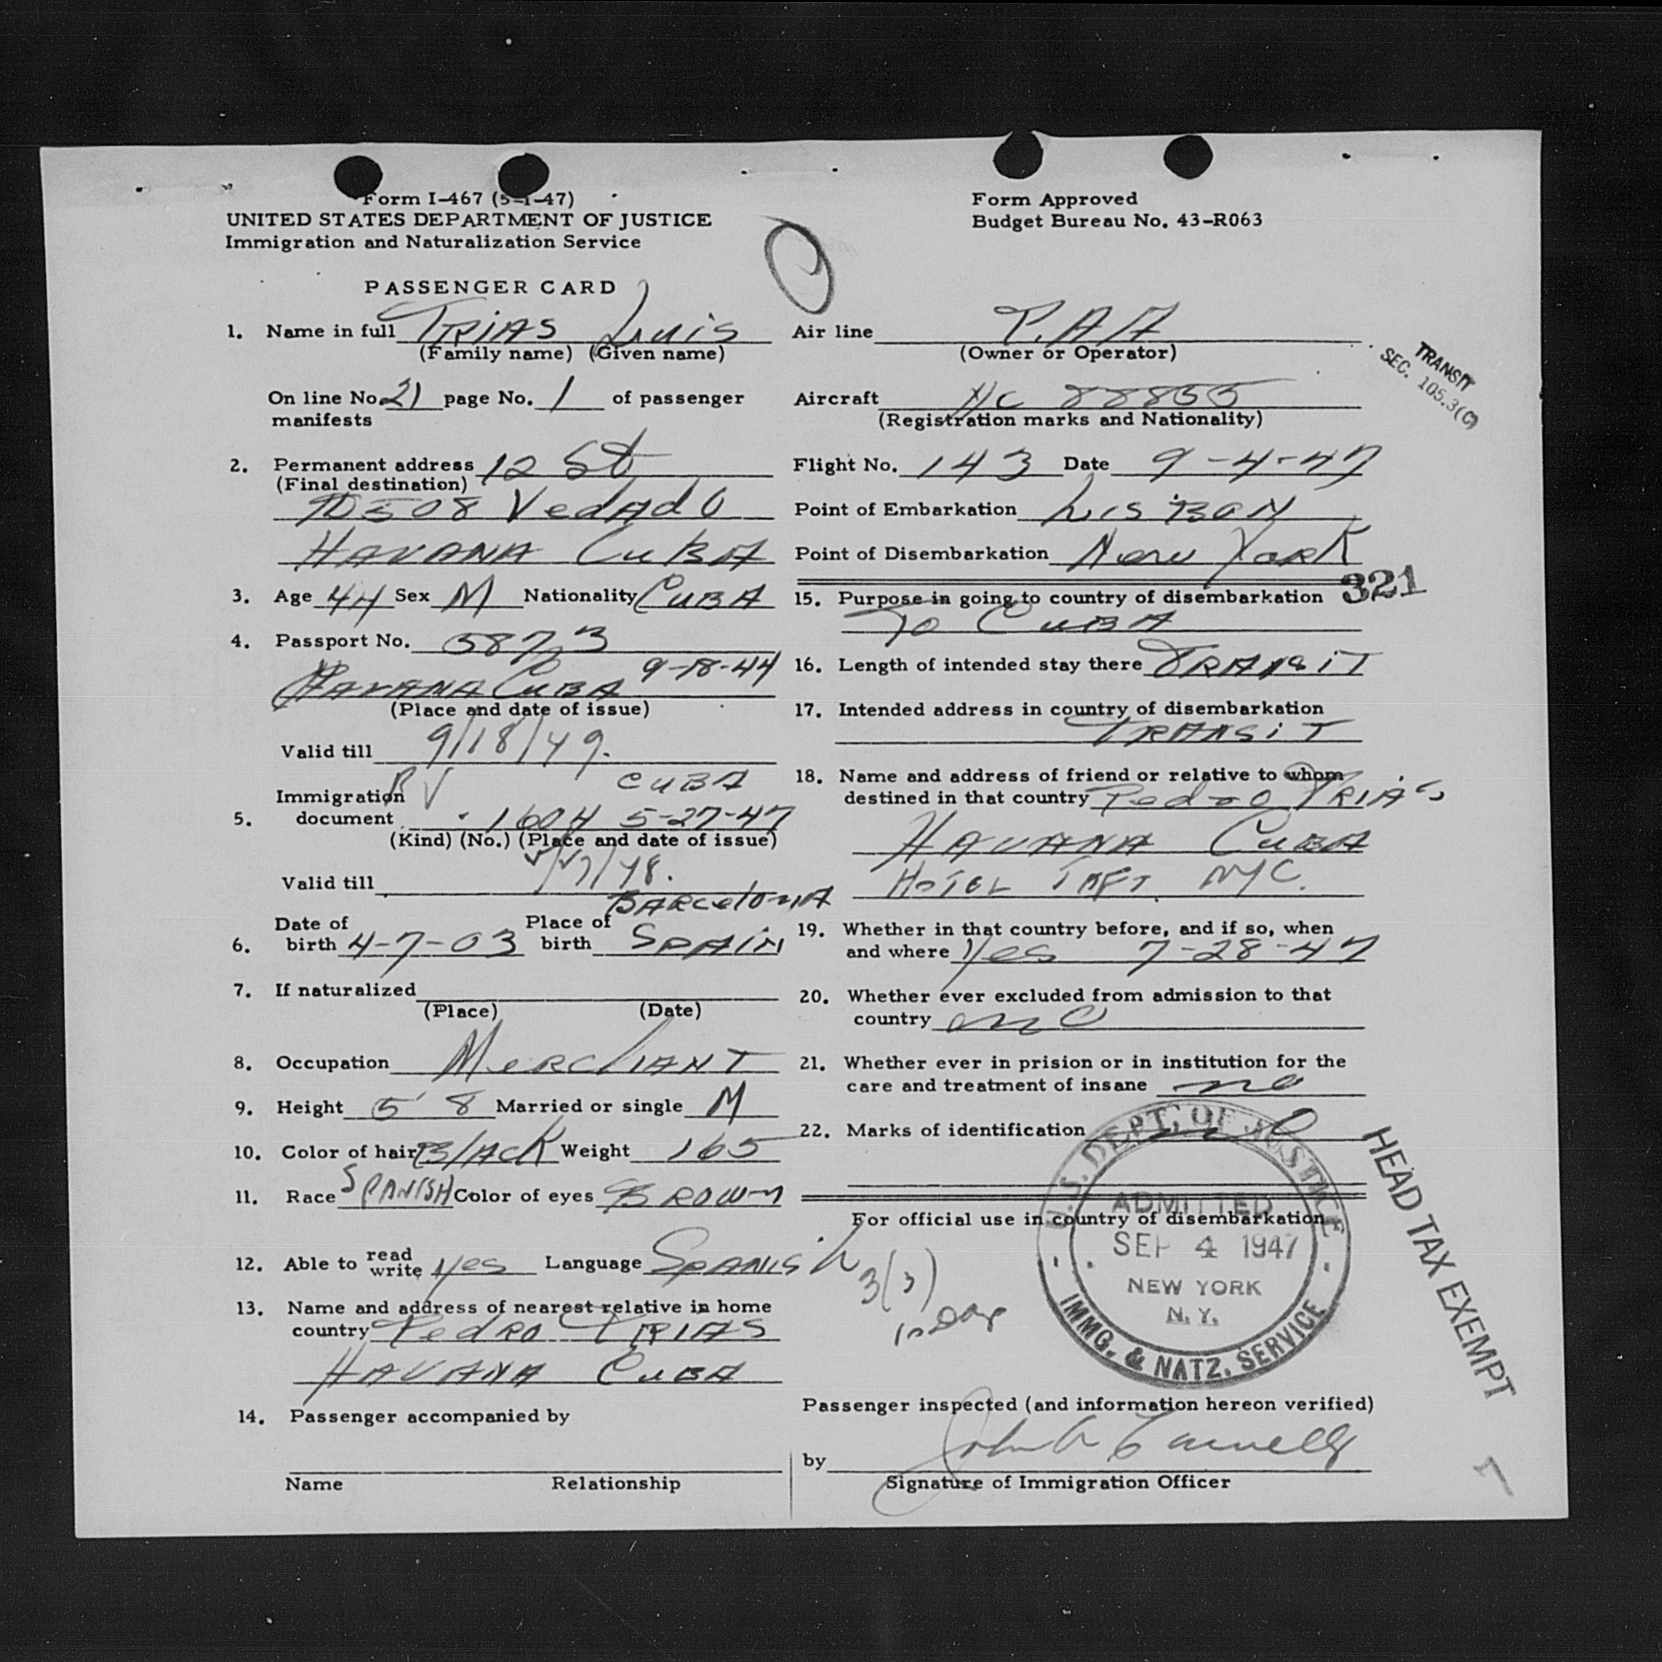 Form I-467 (5-1-47)
UNITED STATES DEPARTMENT OF JUSTICE
Immigration and Naturalization Service
Form Approved
Budget Bureau No. 43-R063
PASSENGER CARD
1. Name in full TRIAS Luis
(Family name) (Given name)
On line No. 21 page No. 1 of passenger
manifests
2. Permanent address 12 St
(Final destination)
508 Vedado
HAVANA CUBA
3. Age 44 Sex M Nationality CUBA
4. Passport No. 5873
HAVANA CUBA 9-18-44
(Place and date of issue)
Valid till 9/18/49.
PV CUBA
Immigration
5. document 1604 5-27-47
(Kind) (No.) (Place and date of issue)
Valid till
BARCELONA
Date of Place of
6. birth 4-7-03 birth SPAIN
7. If naturalized
(Place) (Date)
8. Occupation MERCHANT
9. Height 5' 8 Married or single M
10. Color of hair BLACK Weight 165
11. Race SPANISH Color of eyes BROWN
12. Able to read write yes Language SPANISH
13. Name and address of nearest relative in home
country Pedro TRIAS
HAVANA CUBA
14. Passenger accompanied by
Name Relationship
Air line P.A.A
(Owner or Operator)
TRANSIT
SEC. 105.3(C)
Aircraft NC 88855
(Registration marks and Nationality)
Flight No. 143 Date 9-4-47
Point of Embarkation LISBON
Point of Disembarkation New York
321
15. Purpose in going to country of disembarkation
TO CUBA
16. Length of intended stay there TRANSIT
17. Intended address in country of disembarkation
TRANSIT
18. Name and address of friend or relative to whom
destined in that country Pedro TRIAS
HAVANA CUBA
HOTEL TAFT NYC.
19. Whether in that country before, and if so, when
and where Yes 7-28-47
20. Whether ever excluded from admission to that
country no
21. Whether ever in prision or in institution for the
care and treatment of insane no
22. Marks of identification no
For official use in country of disembarkation
3(3)
U.S. DEPT. OF JUSTICE
ADMITTED
SEP 4 1947
NEW YORK
N.Y.
IMMG. & NATZ. SERVICE
HEAD TAX EXEMPT
Passenger inspected (and information hereon verified)
by
Signature of Immigration Officer